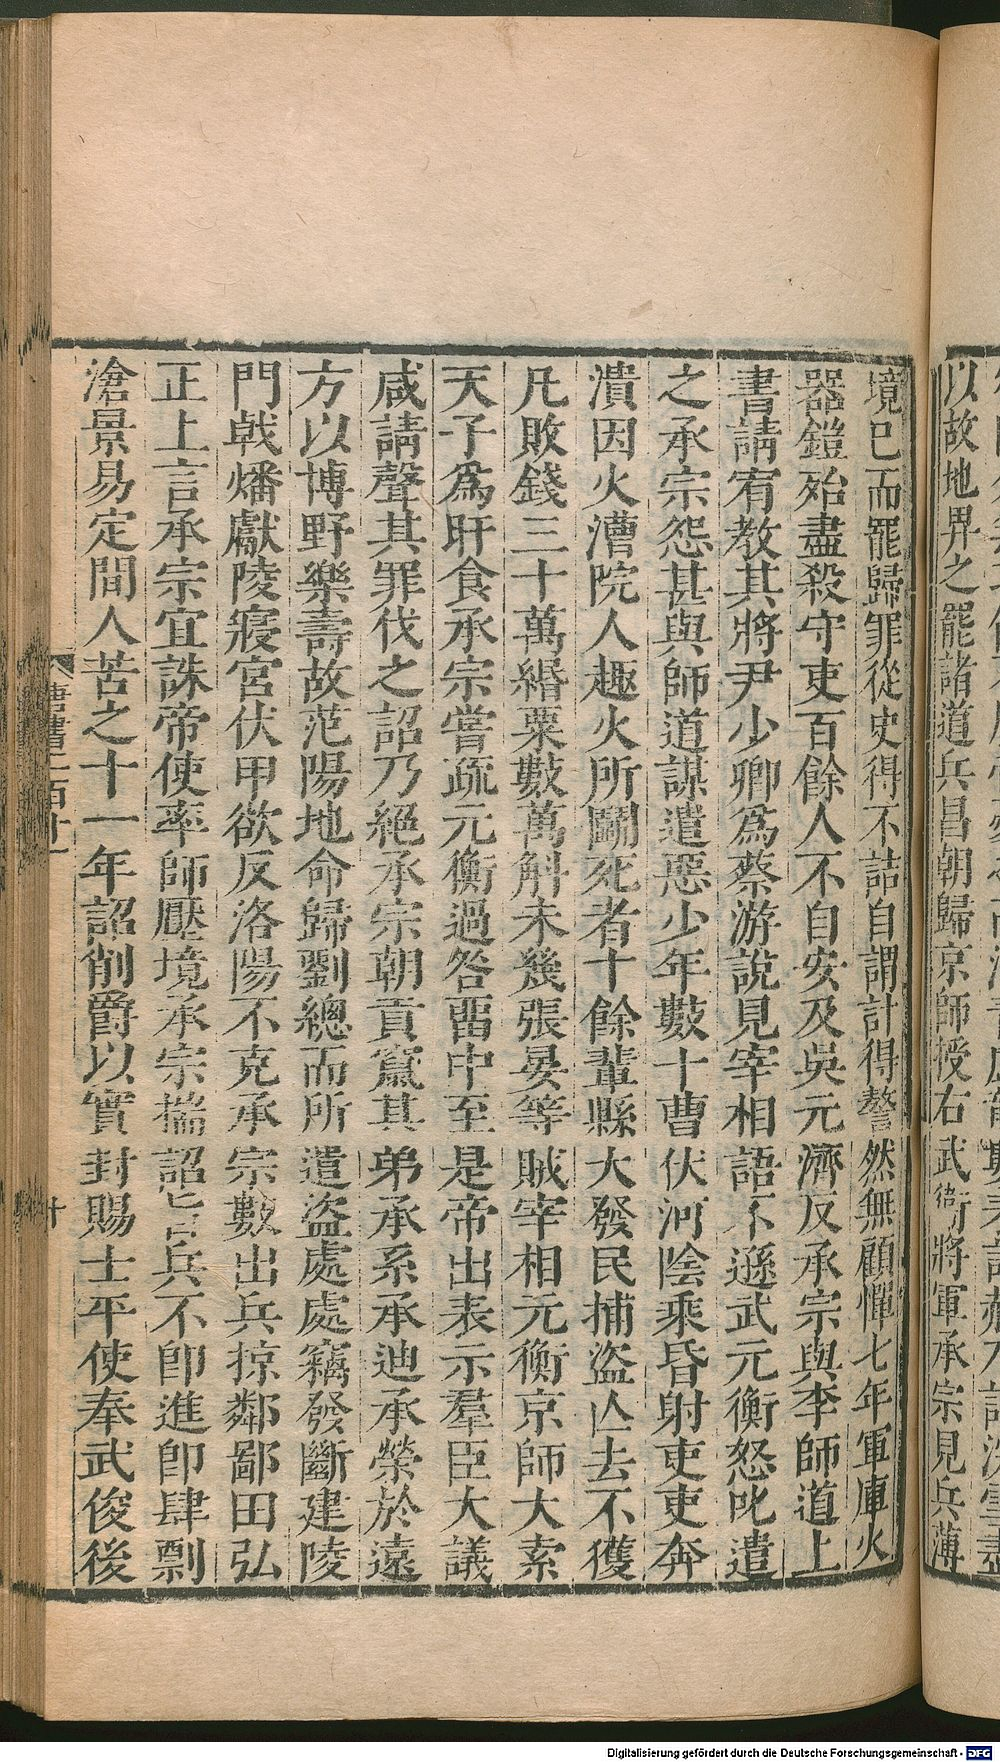 以故地畀之罷諸道兵昌朝歸京師授右武衛將軍承宗見兵薄
境已而罷歸罪從史得不詰自謂計得謷然無顧憚七年軍庫火
器鎧殆盡殺守吏百餘人不自安及吳元濟反承宗與李師道上
書請宥教其將尹少卿爲蔡游說見宰相語不遜武元衡怒叱遣
之承宗怨甚與師道謀遣惡少年數十曹伏河陰乘昏射吏吏奔
潰因火漕院人趣火所鬬死者十餘輩縣大發民捕盜亾去不獲
凡敗錢三十萬緡粟數萬斛未幾張晏等賊宰相元衡京師大索
天子爲旰食承宗嘗疏元衡過咎畱中至是帝出表示羣臣大議
咸請聲其罪伐之詔乃絕承宗朝貢竄其弟承系承迪承榮於遠
方以博野樂壽故范陽地命歸劉總而所遣盜處處竊發斷建陵
門戟燔獻陵寢宮伏甲欲反洛陽不克承宗數出兵掠鄰鄙田弘
正上言承宗宜誅帝使率師壓境承宗揣詔兵不卽進卽肆剽
滄景易定間人苦之十一年詔削爵以實封賜士平使奉武俊後
唐書二百十一
十
Digitalisierung gefördert durch die Deutsche Forschungsgemeinschaft - DFG